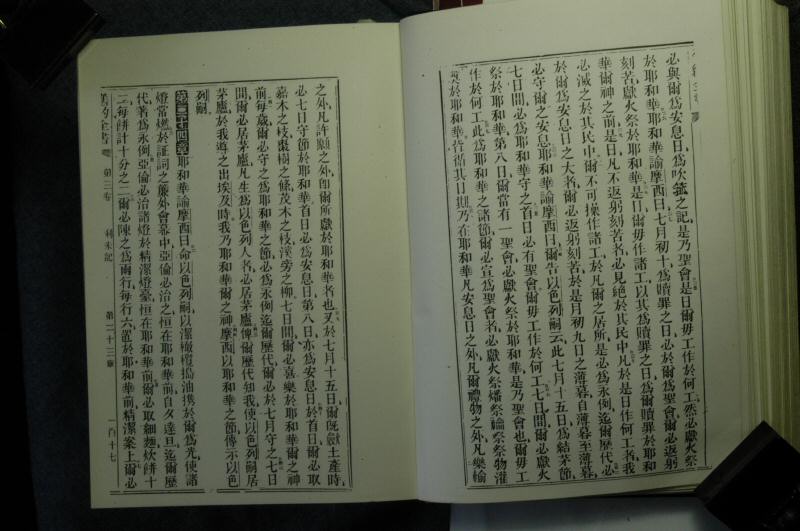 必與爾爲安息日爲吹號之記是乃聖會是日爾毋工作於何工然必獻火祭
於耶和華耶和華諭摩西曰七月初十爲贖罪之日必於爾爲聖會爾必返躬
刻苦獻火祭於耶和華是日爾毋作諸工以其爲贖罪之日爲爾贖罪於耶和
華爾神之前是日凡不返躬刻苦者必見絕於其民中凡於是日作何工者我
必滅之於其民中爾不可操作諸工於凡爾之居所是必爲永例迄爾歷代必
於爾爲安息日之大者爾必返躬刻苦於是月初九日之薄暮自薄暮至薄暮
必守爾之安息耶和華諭摩西曰爾告以色列嗣云此七月十五日爲結茅節
七日間必爲耶和華守之首日必有聖會爾毋工作於何工七日間爾必獻火
祭於耶和華第八日爾當有一聖會必獻火祭於耶和華是乃聖會也爾毋工
作於何工此爲耶和華之諸節爾必宣爲聖會者必獻火祭燔祭禴祭祭物灌
奠於耶和華皆循其日期乃在耶和華凡安息日之外凡爾禮物之外凡樂輸
之外凡許願之外卽爾所獻於耶和華者也又於七月十五日爾旣斂土產時
必七日守節於耶和華首日必爲安息日第八日亦爲安息日於首日爾必取
嘉木之枝棗樹之條茂木之枝溪旁之柳七日間爾必喜樂於耶和華爾之神
前每歲爾必守之爲耶和華之節必爲永例迄爾歷代爾必於七月守之七日
間爾必居茅廬凡生爲以色列人者必居茅廬俾爾歷代知我使以色列嗣居
茅廬於我導之出埃及時我乃耶和華爾之神摩西以耶和華之節傳示以色
列嗣
第二十四章 耶和華諭摩西曰命以色列嗣以潔橄欖搗油攜於爾爲光使諸
燈常燃於証詞之簾外會幕中亞倫必治之恒在耶和華前自夕達旦迄爾歷
代著爲永例亞倫必治諸燈於精潔燈臺恒在耶和華前爾必取細麵炊餅十
二每餅計十分之二爾必陳之爲兩行每行六置於耶和華前精潔案上爾必
第三卷 利未記 第二十三章 一百十七